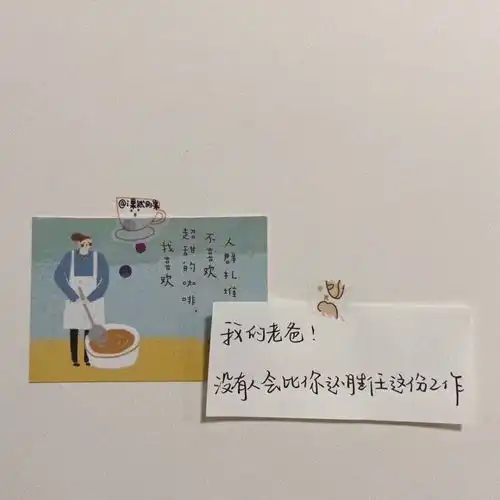 人群扎堆
不喜欢
超甜的咖啡,
我喜欢
我的老爸!
没有人会比你还胜任这份工作